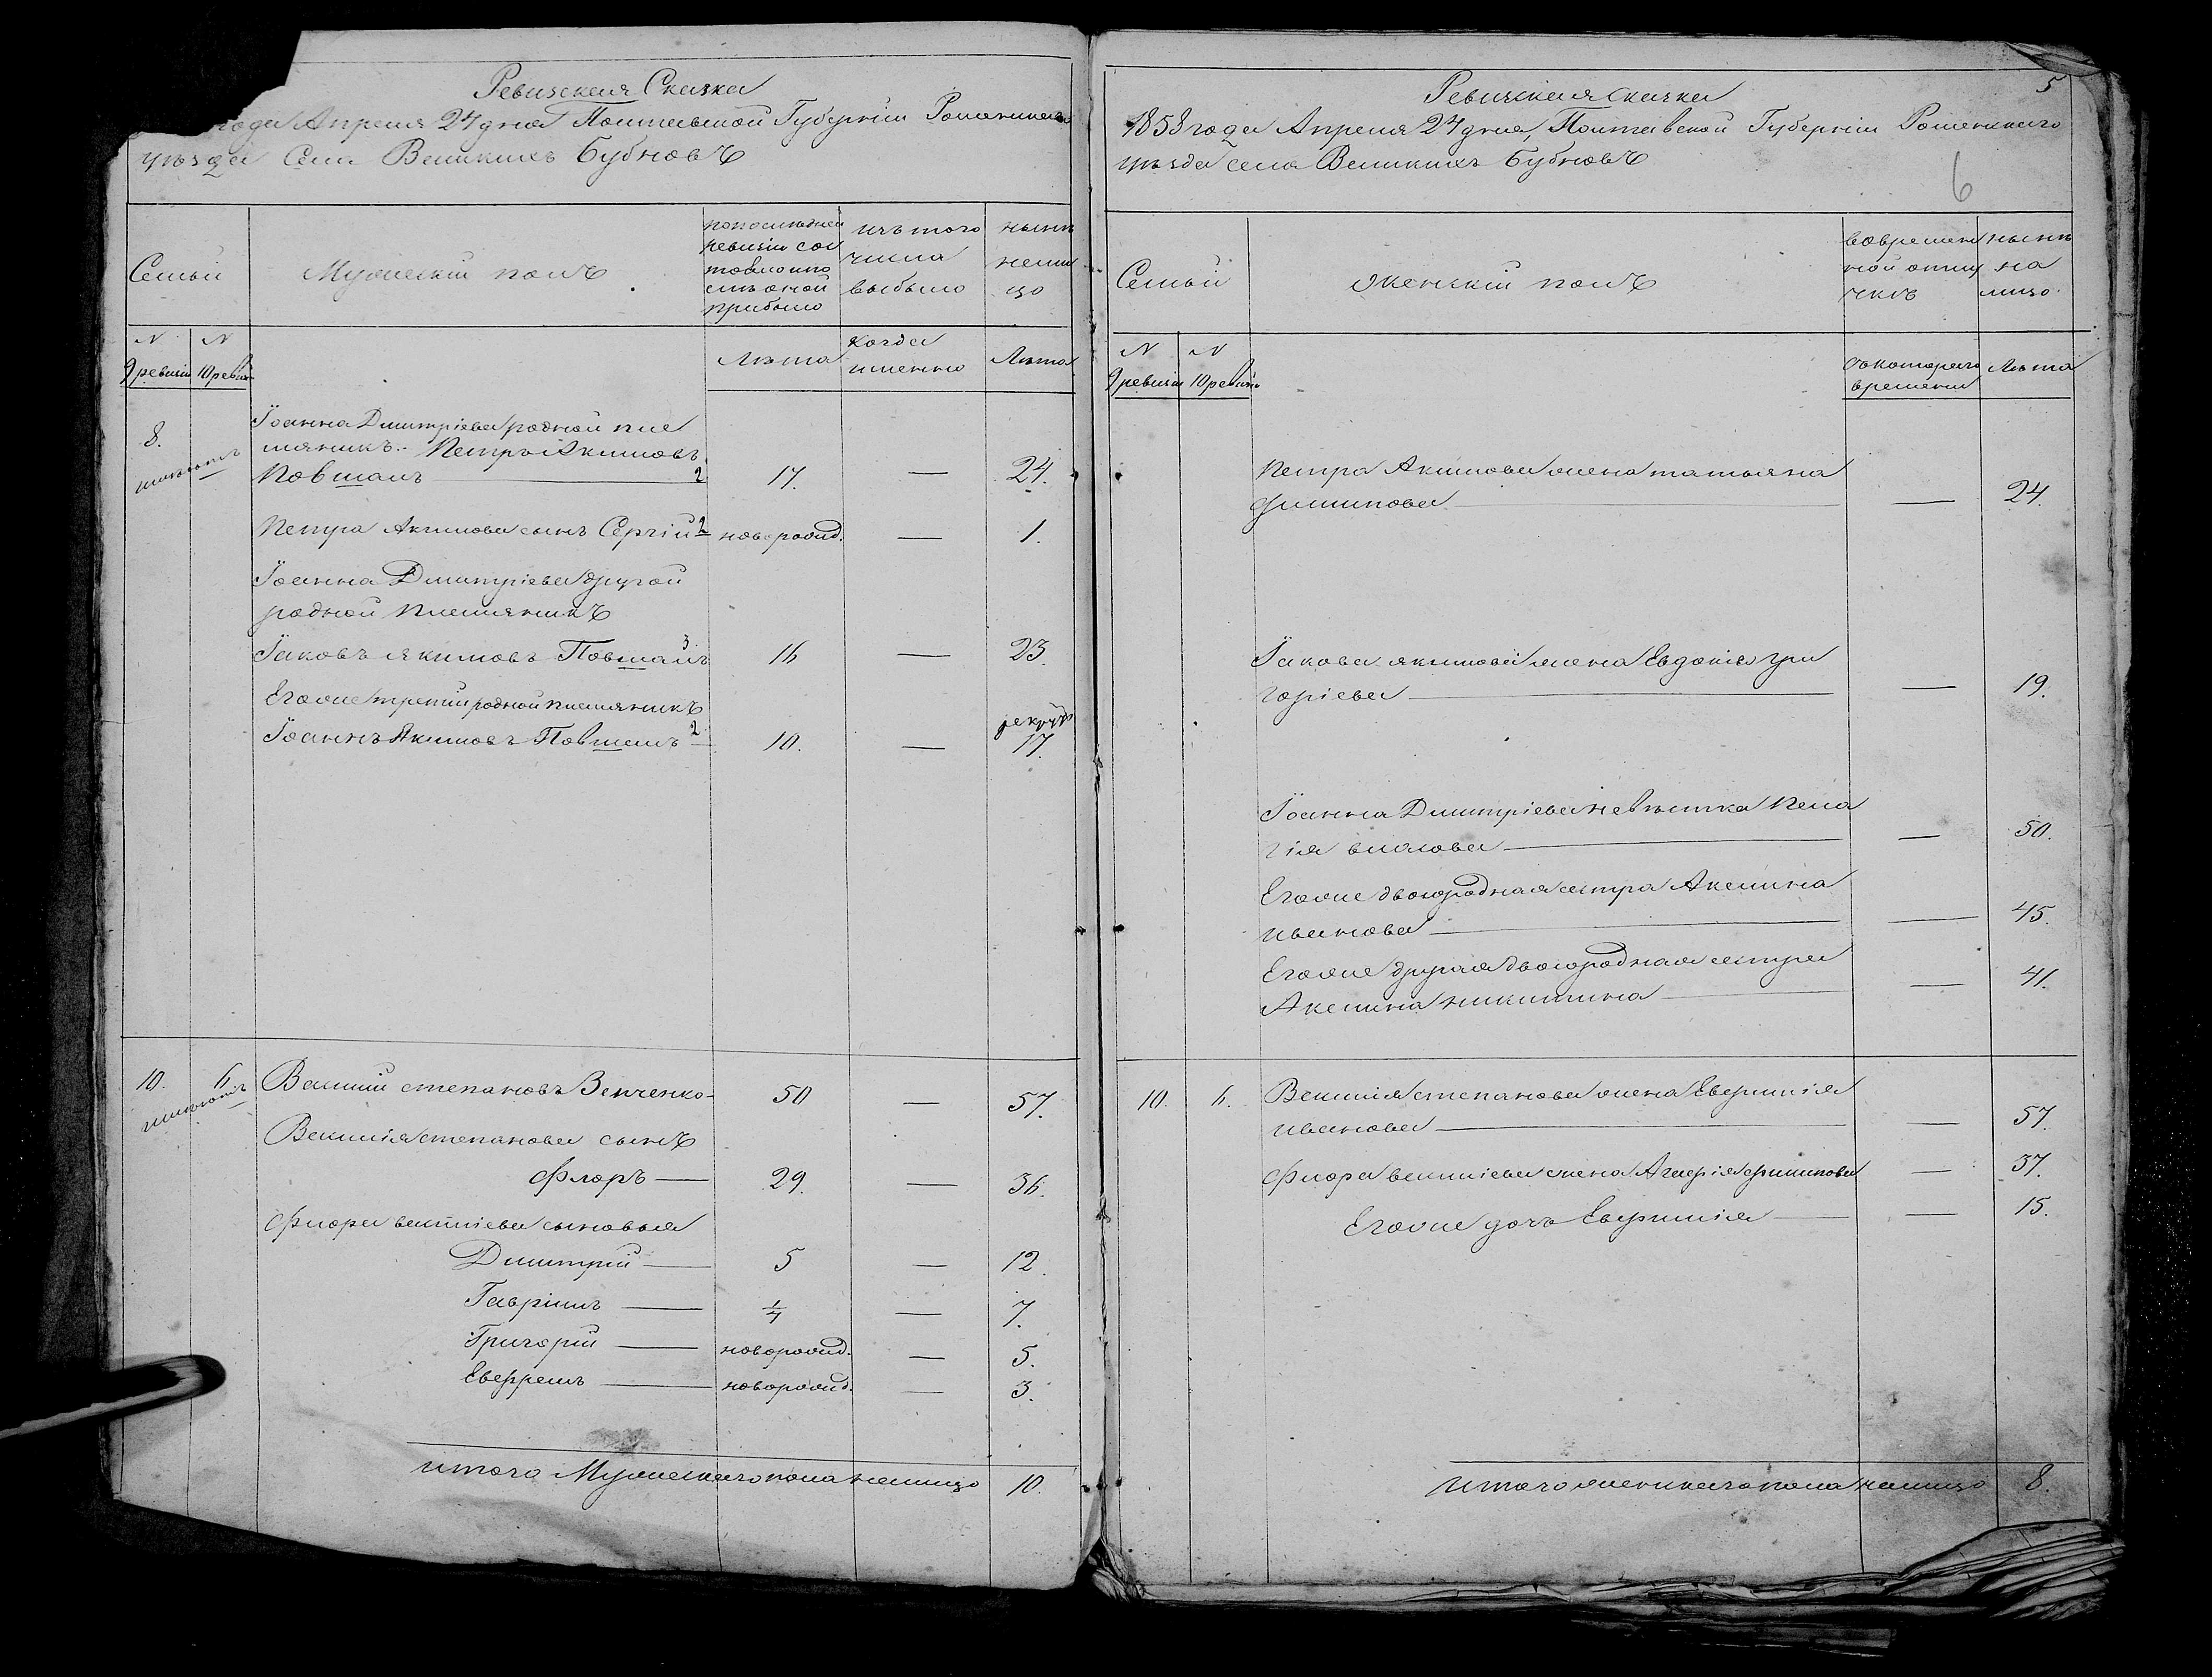 Ревизская Сказка
года Апреля 24 дня Полтавской Губерніи Роменскаго
уѣзда Села Великихъ Бубновъ
Семьи
Мужескій полъ
по последней
ревизіи сос
тояло и по
слѣ оной
прибыло
изъ того
числа
выбыло
нынѣ
нали
цо
N N
9 ревизіи 10 ревизіи
Лѣта
когда
именно
Лѣта
8.
Іоанна Димитріева родной пле
мяникъ.. Петръ Акимовъ
Повшаръ 2 17. — 24.
Петра Акимова сынъ Сергій 2 новорожд. — 1.
Іоанна Димитріева другой
родной племяникъ
Іаковъ Якимовъ 3 16 — 23.
Егоже третій родной племяникъ
рекрутъ
Іоаннъ Якимовъ 2 10. — 17.
10. 6. Василій Степановъ Зенченко 50 — 57.
Василія Степанова сынъ
Флоръ — 29. — 36.
Флора Василіева сыновья
Димитрій — 5 — 12.
Гавріилъ — 1/4 — 7.
Григорій — новорожд. — 5.
Евфремъ — новорожд. — 3.
Итого Мужескаго пола налицо 10.
5
Ревизская Сказка
1858 года Апреля 24 дня, Полтавской Губерніи Роменскаго
уѣзда села Великихъ Бубновъ
6
Семьи
Женскій полъ
во времен
ной отлу
чкѣ
нынѣ
на
лицо.
N N
9 ревизіи 10 ревизіи
съ котораго
времени
Лѣта
Петра Акимова жена Татьяна
Филипова — — 24.
Іакова Якимова жена Евдокія Гри
горіева — — 19.
Іоанна Димитріева невѣстка Пела
гія Власова — — 50.
Егоже двоюродная сестра Акелина
Иванова — — 45.
Егоже другая двоюродная сестра
Акелина Никитина — — 41.
10. 6. Василія Степанова жена Евфимія
Иванова — — 57.
Флора Василіева жена Агафія Филипова — 37.
Егоже дочь Евфимія — — 15.
Итого женскаго пола налицо 8.